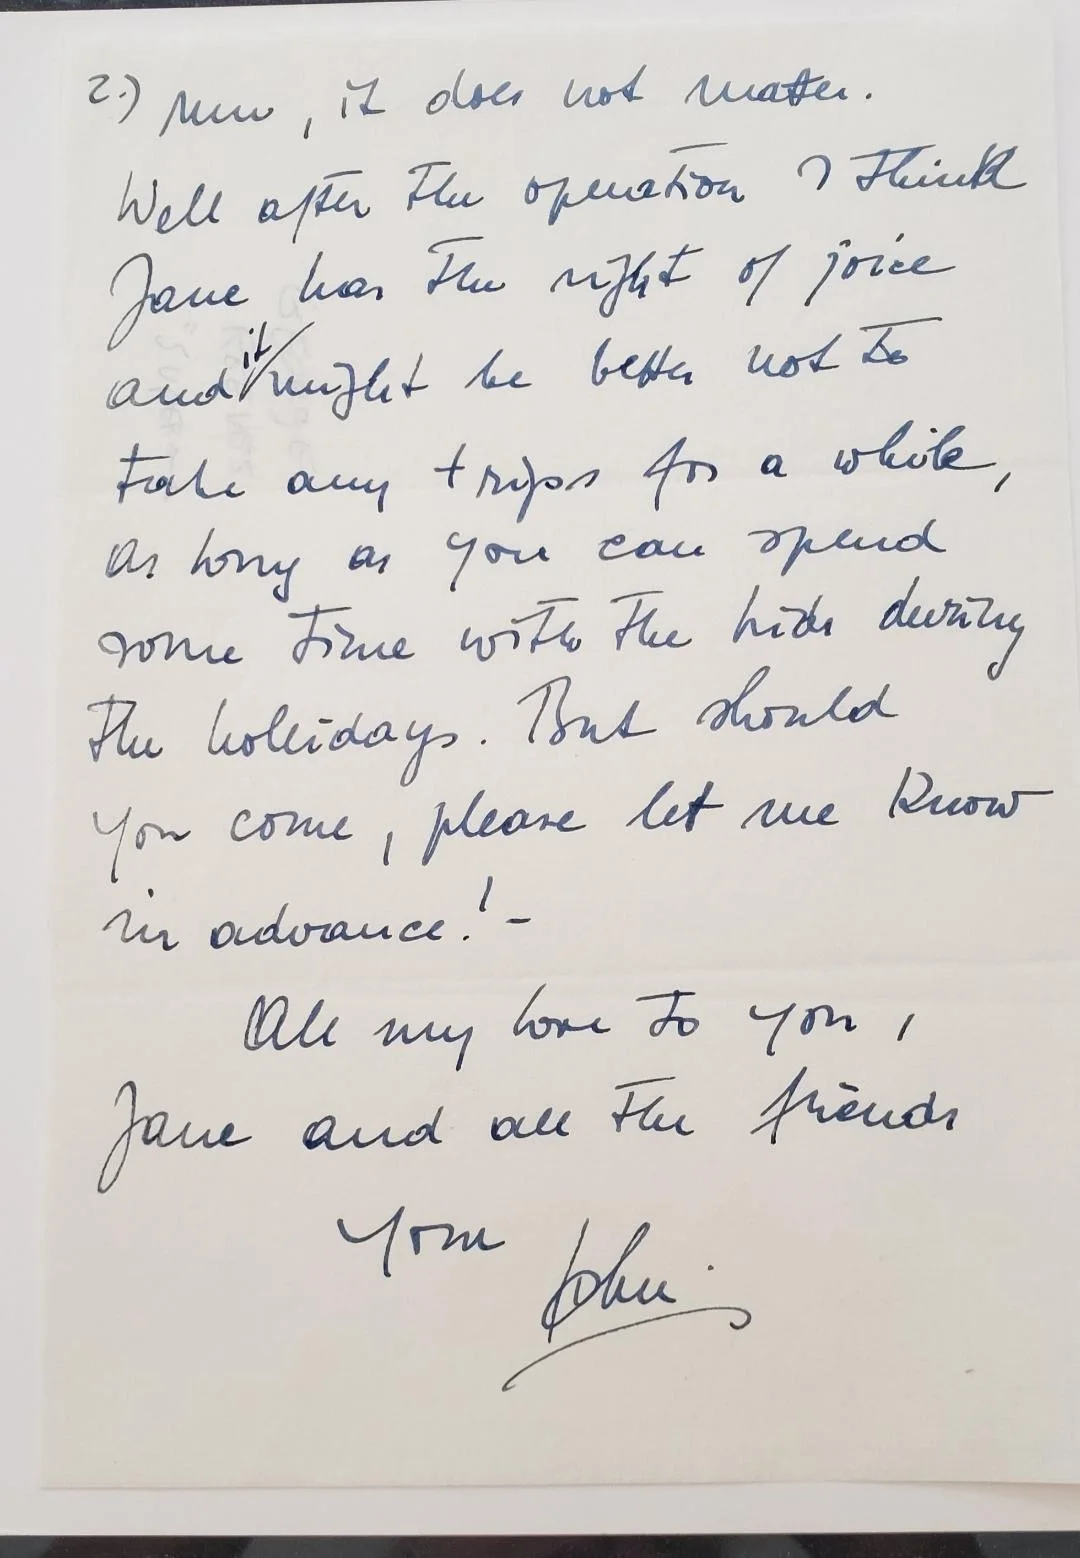 2.) now, it does not matter.
Well after the operation I think
Jane has the right of joice
and it might be better not to
take any trips for a while,
as long as you can spend
some time with the kids during
the holidays. But should
you come, please let me know
in advance! -
All my love to you,
Jane and all the friends
Your